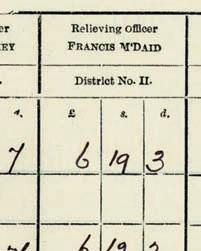 er Relieving Officer
EY FRANCIS M'DAID
. District No. II.
s. £ s. d.
7 6 19 3
6 19 3